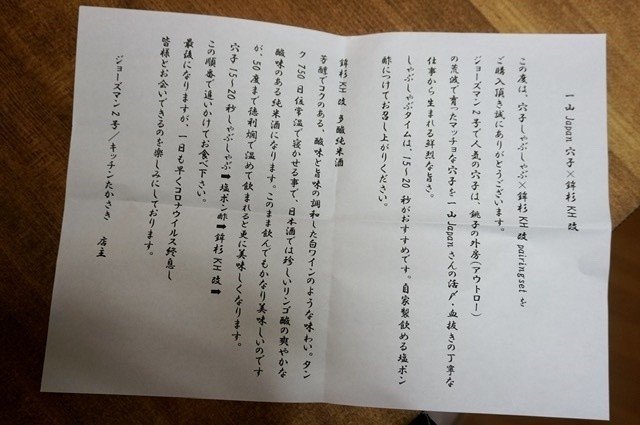 一山 Japan 穴子×鉾杉 KH 改
この度は、穴子しゃぶしゃぶ×鉾杉 KH 改 pairingset を
ご購入頂き誠にありがとうございます。
ジョーズマン2号で人気の穴子は、銚子の外房(アウトロー)
の荒波で育ったマッチョな穴子を一山 Japan さんの活〆・血抜きの丁寧な
仕事から生まれる鮮烈な旨さ。
しゃぶしゃぶタイムは、15〜20 秒がおすすめです。自家製飲める塩ポン
酢につけてお召し上がりください。
鉾杉 KH 改 多酸純米酒
芳醇でコクのある、酸味と旨味の調和した白ワインのような味わい。タン
ク 750 日位常温で寝かせる事で、日本酒では珍しいリンゴ酸の爽やかな
酸味のある純米酒になります。このまま飲んでもかなり美味しいのです
が、50 度まで徳利燗で温めて飲まれると更に美味しくなります。
穴子 15〜20 秒しゃぶしゃぶ➡塩ポン酢➡鉾杉 KH 改➡
この順番で追いかけてお食べ下さい。
最後になりますが、一日も早くコロナウイルス終息し
皆様とお会いできるのを楽しみにしております。
ジョーズマン2号/キッチンたかさき 店主